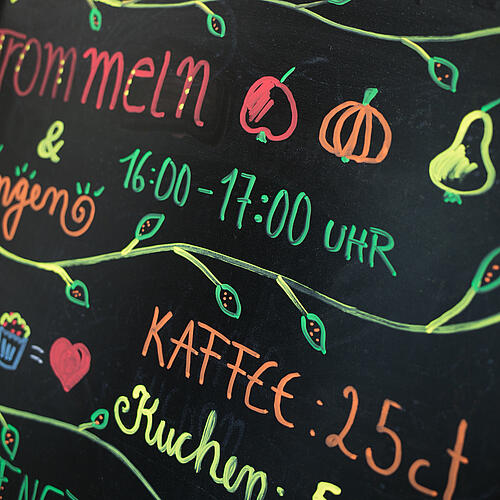 Trommeln
&
ngen
16:00 - 17:00 UHR
=
KAFFEE: 25ct
Kuchen: